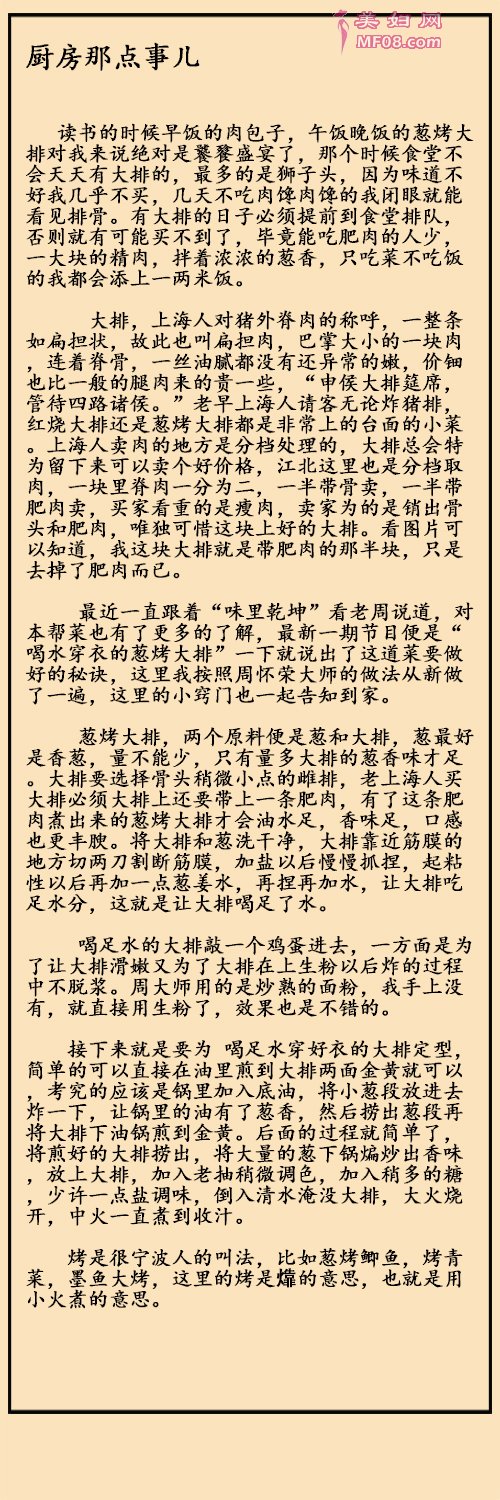 美妇网
MF08.com
厨房那点事儿
读书的时候早饭的肉包子，午饭晚饭的葱烤大
排对我来说绝对是饕餮盛宴了，那个时候食堂不
会天天有大排的，最多的是狮子头，因为味道不
好我几乎不买，几天不吃肉馋肉馋的我闭眼就能
看见排骨。有大排的日子必须提前到食堂排队，
否则就有可能买不到了，毕竟能吃肥肉的人少，
一大块的精肉，拌着浓浓的葱香，只吃菜不吃饭
的我都会添上一两米饭。
大排，上海人对猪外脊肉的称呼，一整条
如扁担状，故此也叫扁担肉，巴掌大小的一块肉
，连着脊骨，一丝油腻都没有还异常的嫩，价钿
也比一般的腿肉来的贵一些，“申侯大排筵席，
管待四路诸侯。”老早上海人请客无论炸猪排，
红烧大排还是葱烤大排都是非常上的台面的小菜
。上海人卖肉的地方是分档处理的，大排总会特
为留下来可以卖个好价格，江北这里也是分档取
肉，一块里脊肉一分为二，一半带骨卖，一半带
肥肉卖，买家看重的是瘦肉，卖家为的是销出骨
头和肥肉，唯独可惜这块上好的大排。看图片可
以知道，我这块大排就是带肥肉的那半块，只是
去掉了肥肉而已。
最近一直跟着“味里乾坤”看老周说道，对
本帮菜也有了更多的了解，最新一期节目便是“
喝水穿衣的葱烤大排”一下就说出了这道菜要做
好的秘诀，这里我按照周怀荣大师的做法从新做
了一遍，这里的小窍门也一起告知到家。
葱烤大排，两个原料便是葱和大排，葱最好
是香葱，量不能少，只有量多大排的葱香味才足
。大排要选择骨头稍微小点的雌排，老上海人买
大排必须大排上还要带上一条肥肉，有了这条肥
肉煮出来的葱烤大排才会油水足，香味足，口感
也更丰腴。将大排和葱洗干净，大排靠近筋膜的
地方切两刀割断筋膜，加盐以后慢慢抓捏，起粘
性以后再加一点葱姜水，再捏再加水，让大排吃
足水分，这就是让大排喝足了水。
喝足水的大排敲一个鸡蛋进去，一方面是为
了让大排滑嫩又为了大排在上生粉以后炸的过程
中不脱浆。周大师用的是炒熟的面粉，我手上没
有，就直接用生粉了，效果也是不错的。
接下来就是要为 喝足水穿好衣的大排定型，
简单的可以直接在油里煎到大排两面金黄就可以
，考究的应该是锅里加入底油，将小葱段放进去
炸一下，让锅里的油有了葱香，然后捞出葱段再
将大排下油锅煎到金黄。后面的过程就简单了，
将煎好的大排捞出，将大量的葱下锅煸炒出香味
，放上大排，加入老抽稍微调色，加入稍多的糖
，少许一点盐调味，倒入清水淹没大排，大火烧
开，中火一直煮到收汁。
烤是很宁波人的叫法，比如葱烤鲫鱼，烤青
菜，墨鱼大烤，这里的烤是㸆的意思，也就是用
小火煮的意思。